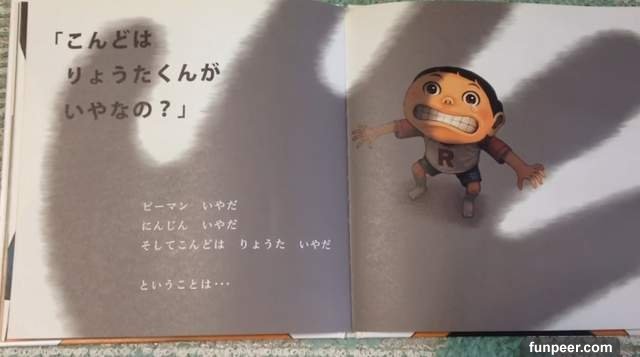 「こんどは
りょうたくんが
いやなの？」
ピーマん　いやだ
にんじん　いやだ
そしてこんどは　りょうた　いやだ
ということは・・・
R
funpeer.com